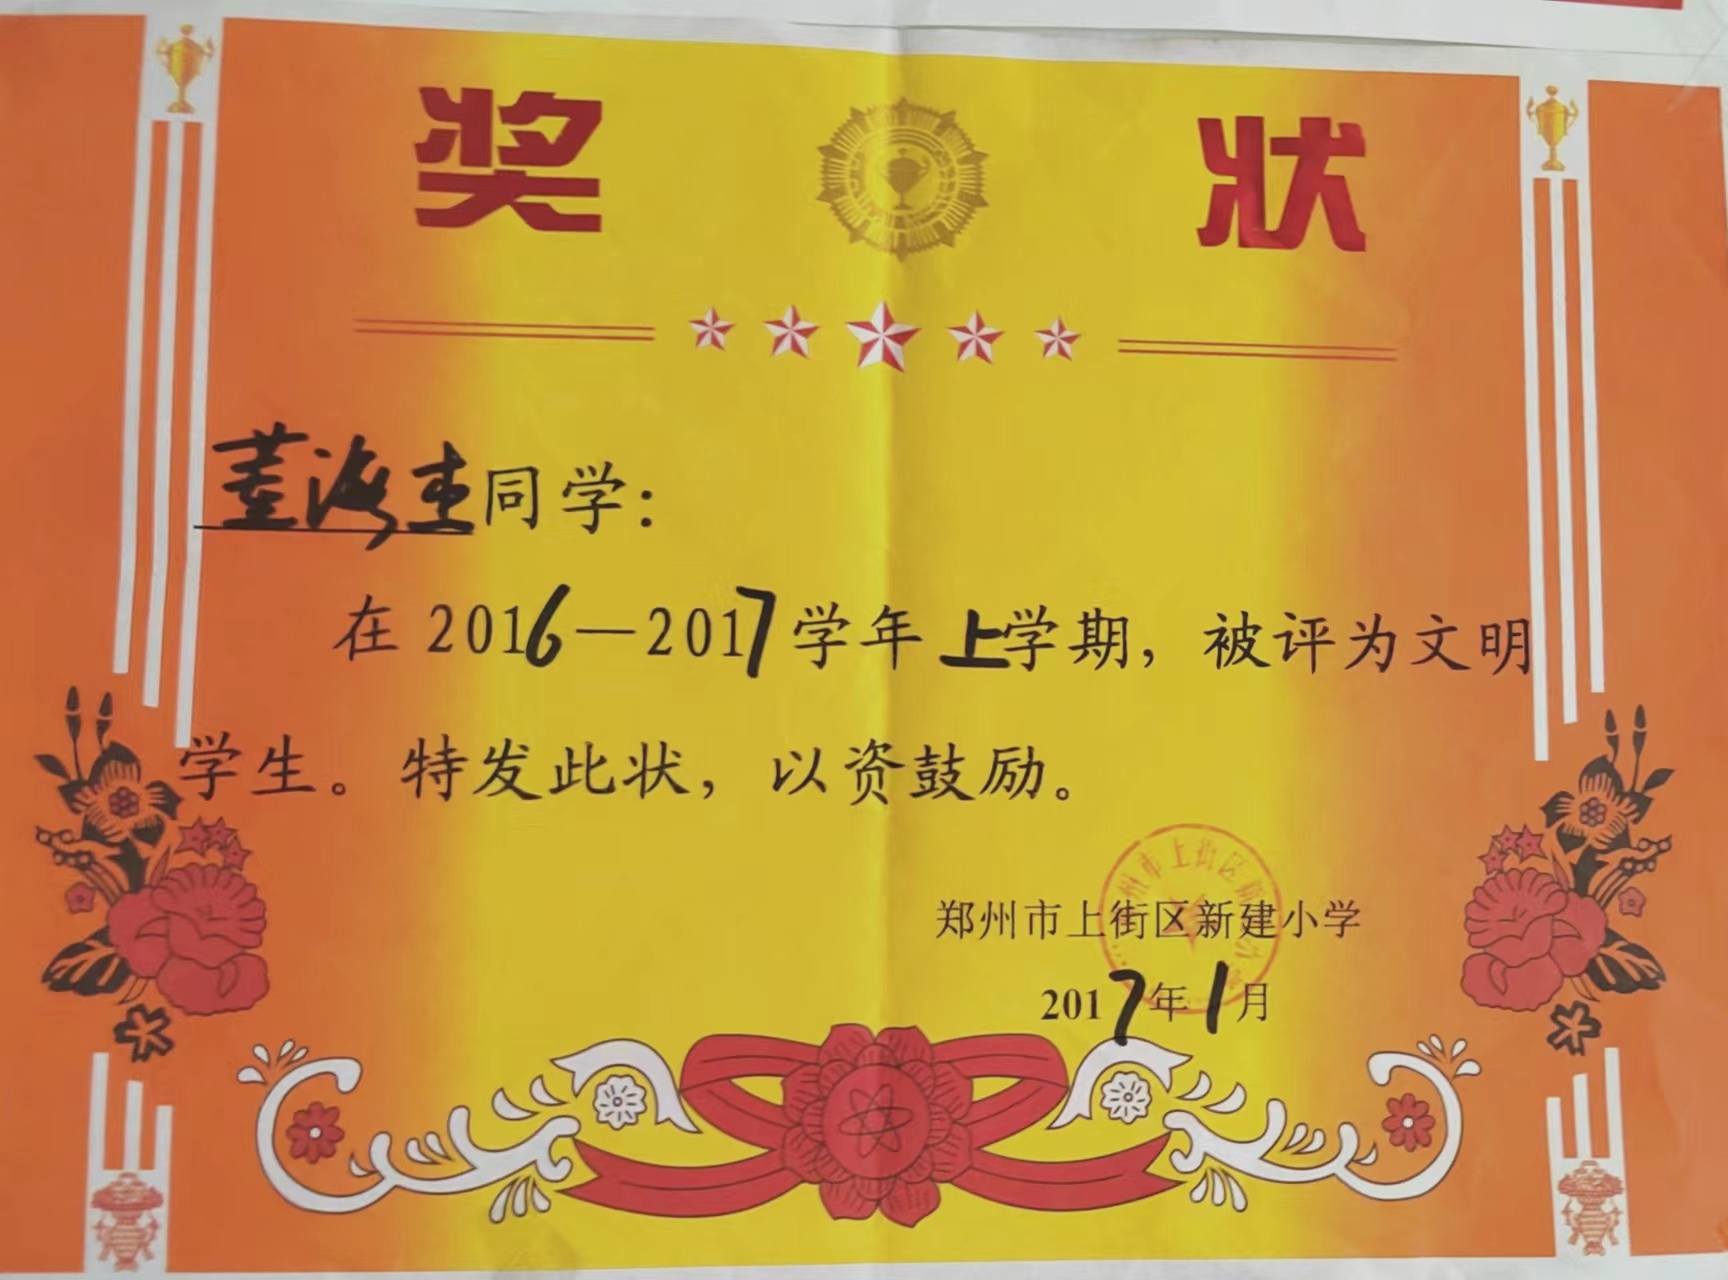 奖状
董海杰同学：
在2016—2017学年上学期，被评为文明
学生。特发此状，以资鼓励。
郑州市上街区新建小学
2017年1月